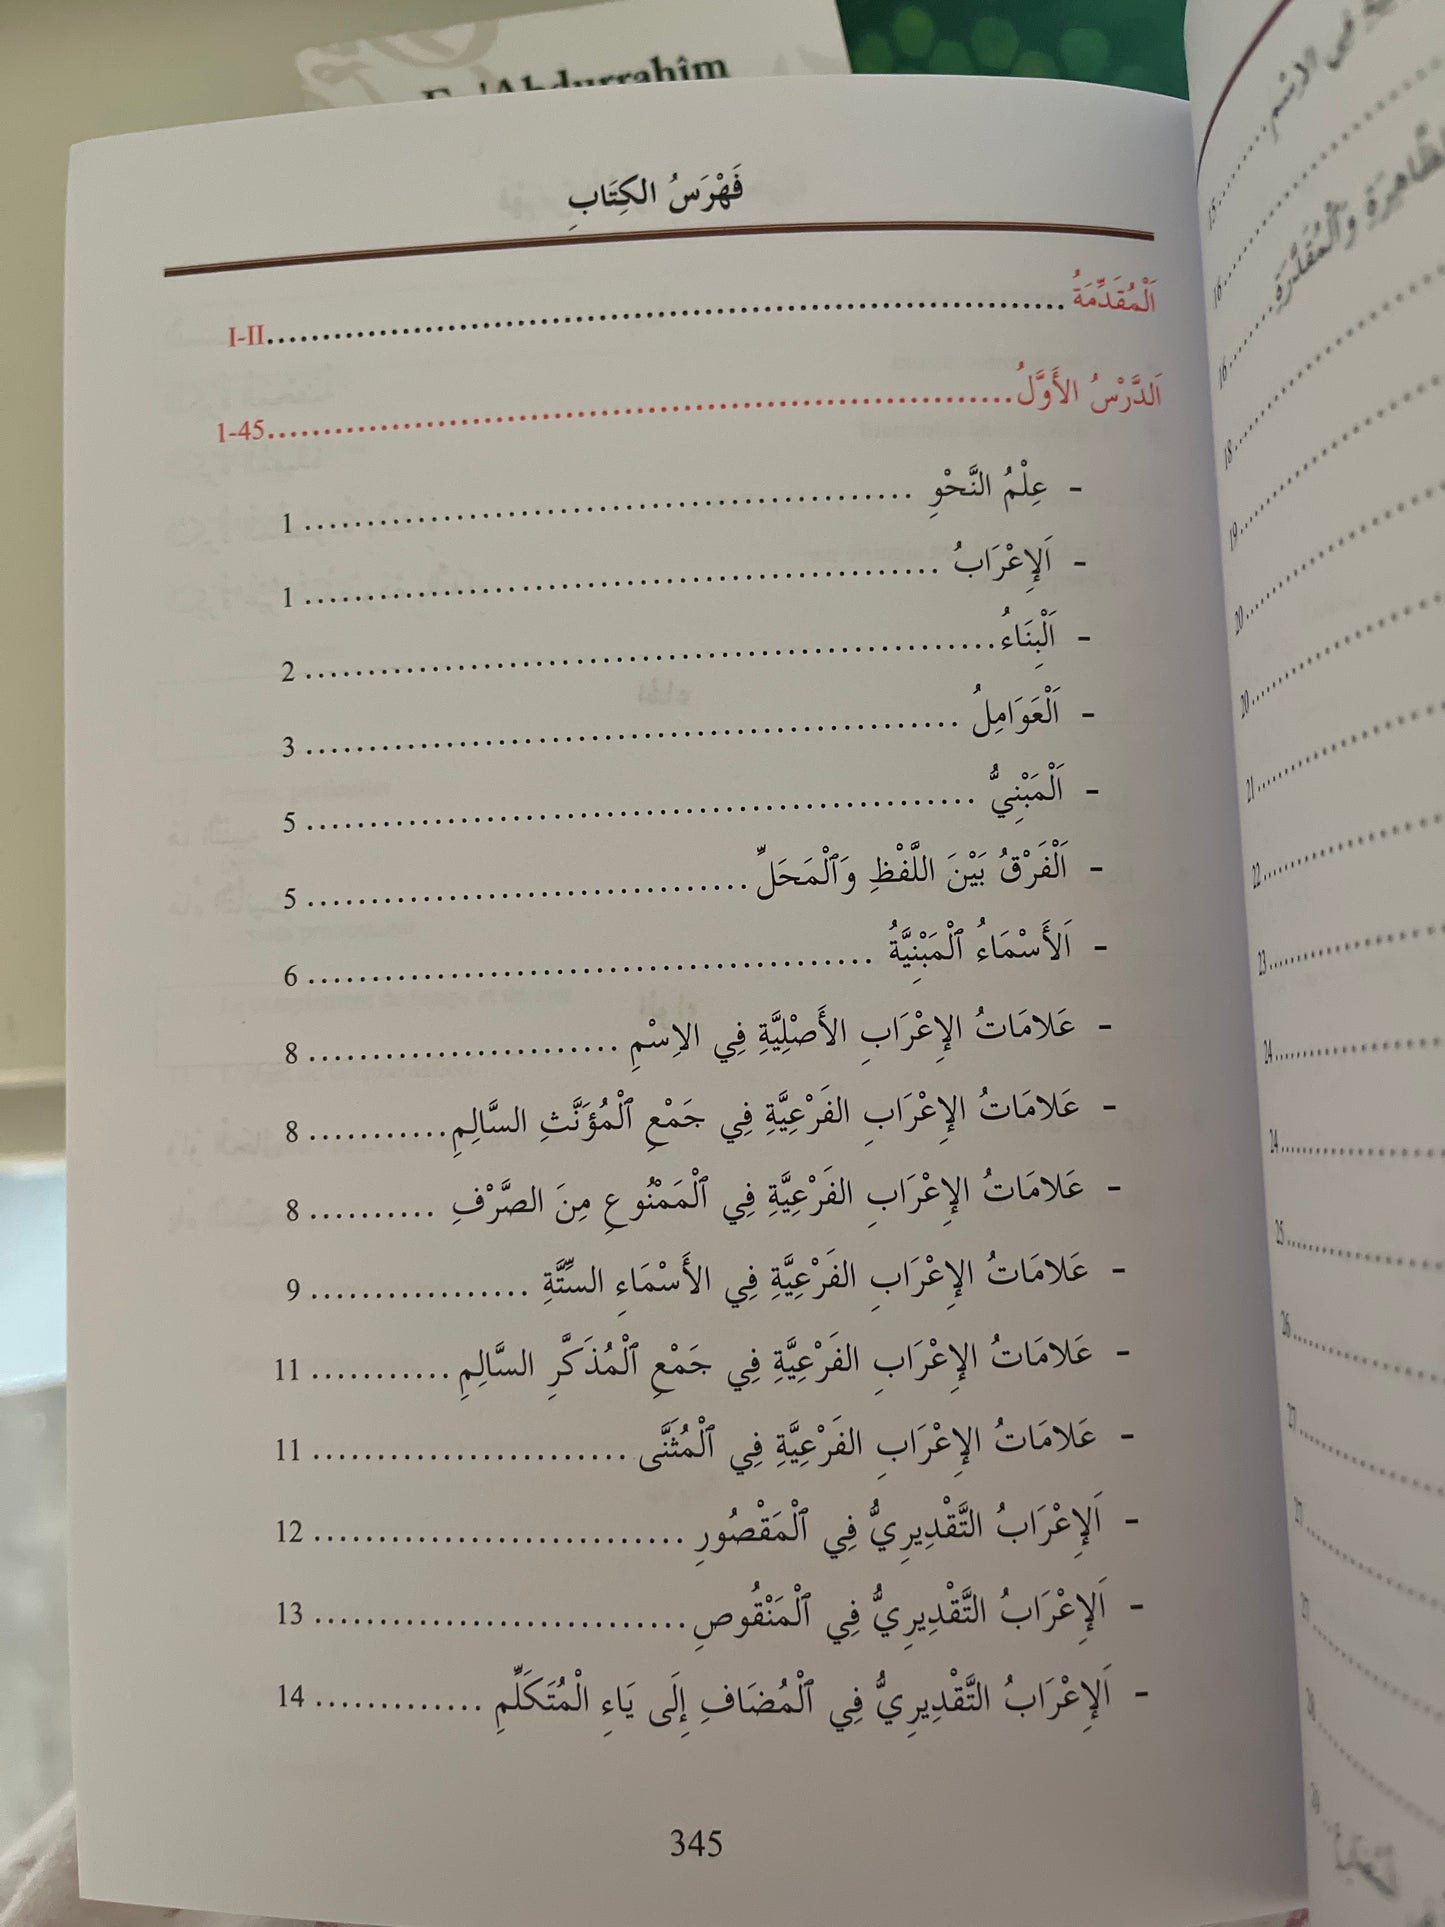 'Abdurrahîm
فَهْرَسُ الكِتَابِ
اَلْمُقَدِّمَةُ ........ I-II
اَلدَّرْسُ الأَوَّلُ ........ 1-45
- عِلْمُ النَّحْوِ ........ 1
- اَلإِعْرَابُ ........ 1
- اَلْبِنَاءُ ........ 2
- اَلْعَوَامِلُ ........ 3
- اَلْمَبْنِيُّ ........ 5
- اَلْفَرْقُ بَيْنَ اللَّفْظِ وَٱلْمَحَلِّ ........ 5
- اَلأَسْمَاءُ ٱلْمَبْنِيَّةُ ........ 6
- عَلامَاتُ الإِعْرَابِ الأَصْلِيَّةِ فِي الاِسْمِ ........ 8
- عَلامَاتُ الإِعْرَابِ الفَرْعِيَّةِ فِي جَمْعِ ٱلْمُؤَنَّثِ السَّالِمِ ........ 8
- عَلامَاتُ الإِعْرَابِ الفَرْعِيَّةِ فِي ٱلْمَمْنُوعِ مِنَ الصَّرْفِ ........ 8
- عَلامَاتُ الإِعْرَابِ الفَرْعِيَّةِ فِي الأَسْمَاءِ السِّتَّةِ ........ 9
- عَلامَاتُ الإِعْرَابِ الفَرْعِيَّةِ فِي جَمْعِ ٱلْمُذَكَّرِ السَّالِمِ ........ 11
- عَلامَاتُ الإِعْرَابِ الفَرْعِيَّةِ فِي ٱلْمُثَنَّى ........ 11
- اَلإِعْرَابُ التَّقْدِيرِيُّ فِي ٱلْمَقْصُورِ ........ 12
- اَلإِعْرَابُ التَّقْدِيرِيُّ فِي ٱلْمَنْقُوصِ ........ 13
- اَلإِعْرَابُ التَّقْدِيرِيُّ فِي ٱلْمُضَافِ إِلَى يَاءِ الْمُتَكَلِّمِ ........ 14
345
فِي الاِسْمِ ........ 15
16
وَٱلْمُقَدَّرَةِ ........ 16
18
19
20
20
21
22
23
24
24
25
26
27
27
27
28
29